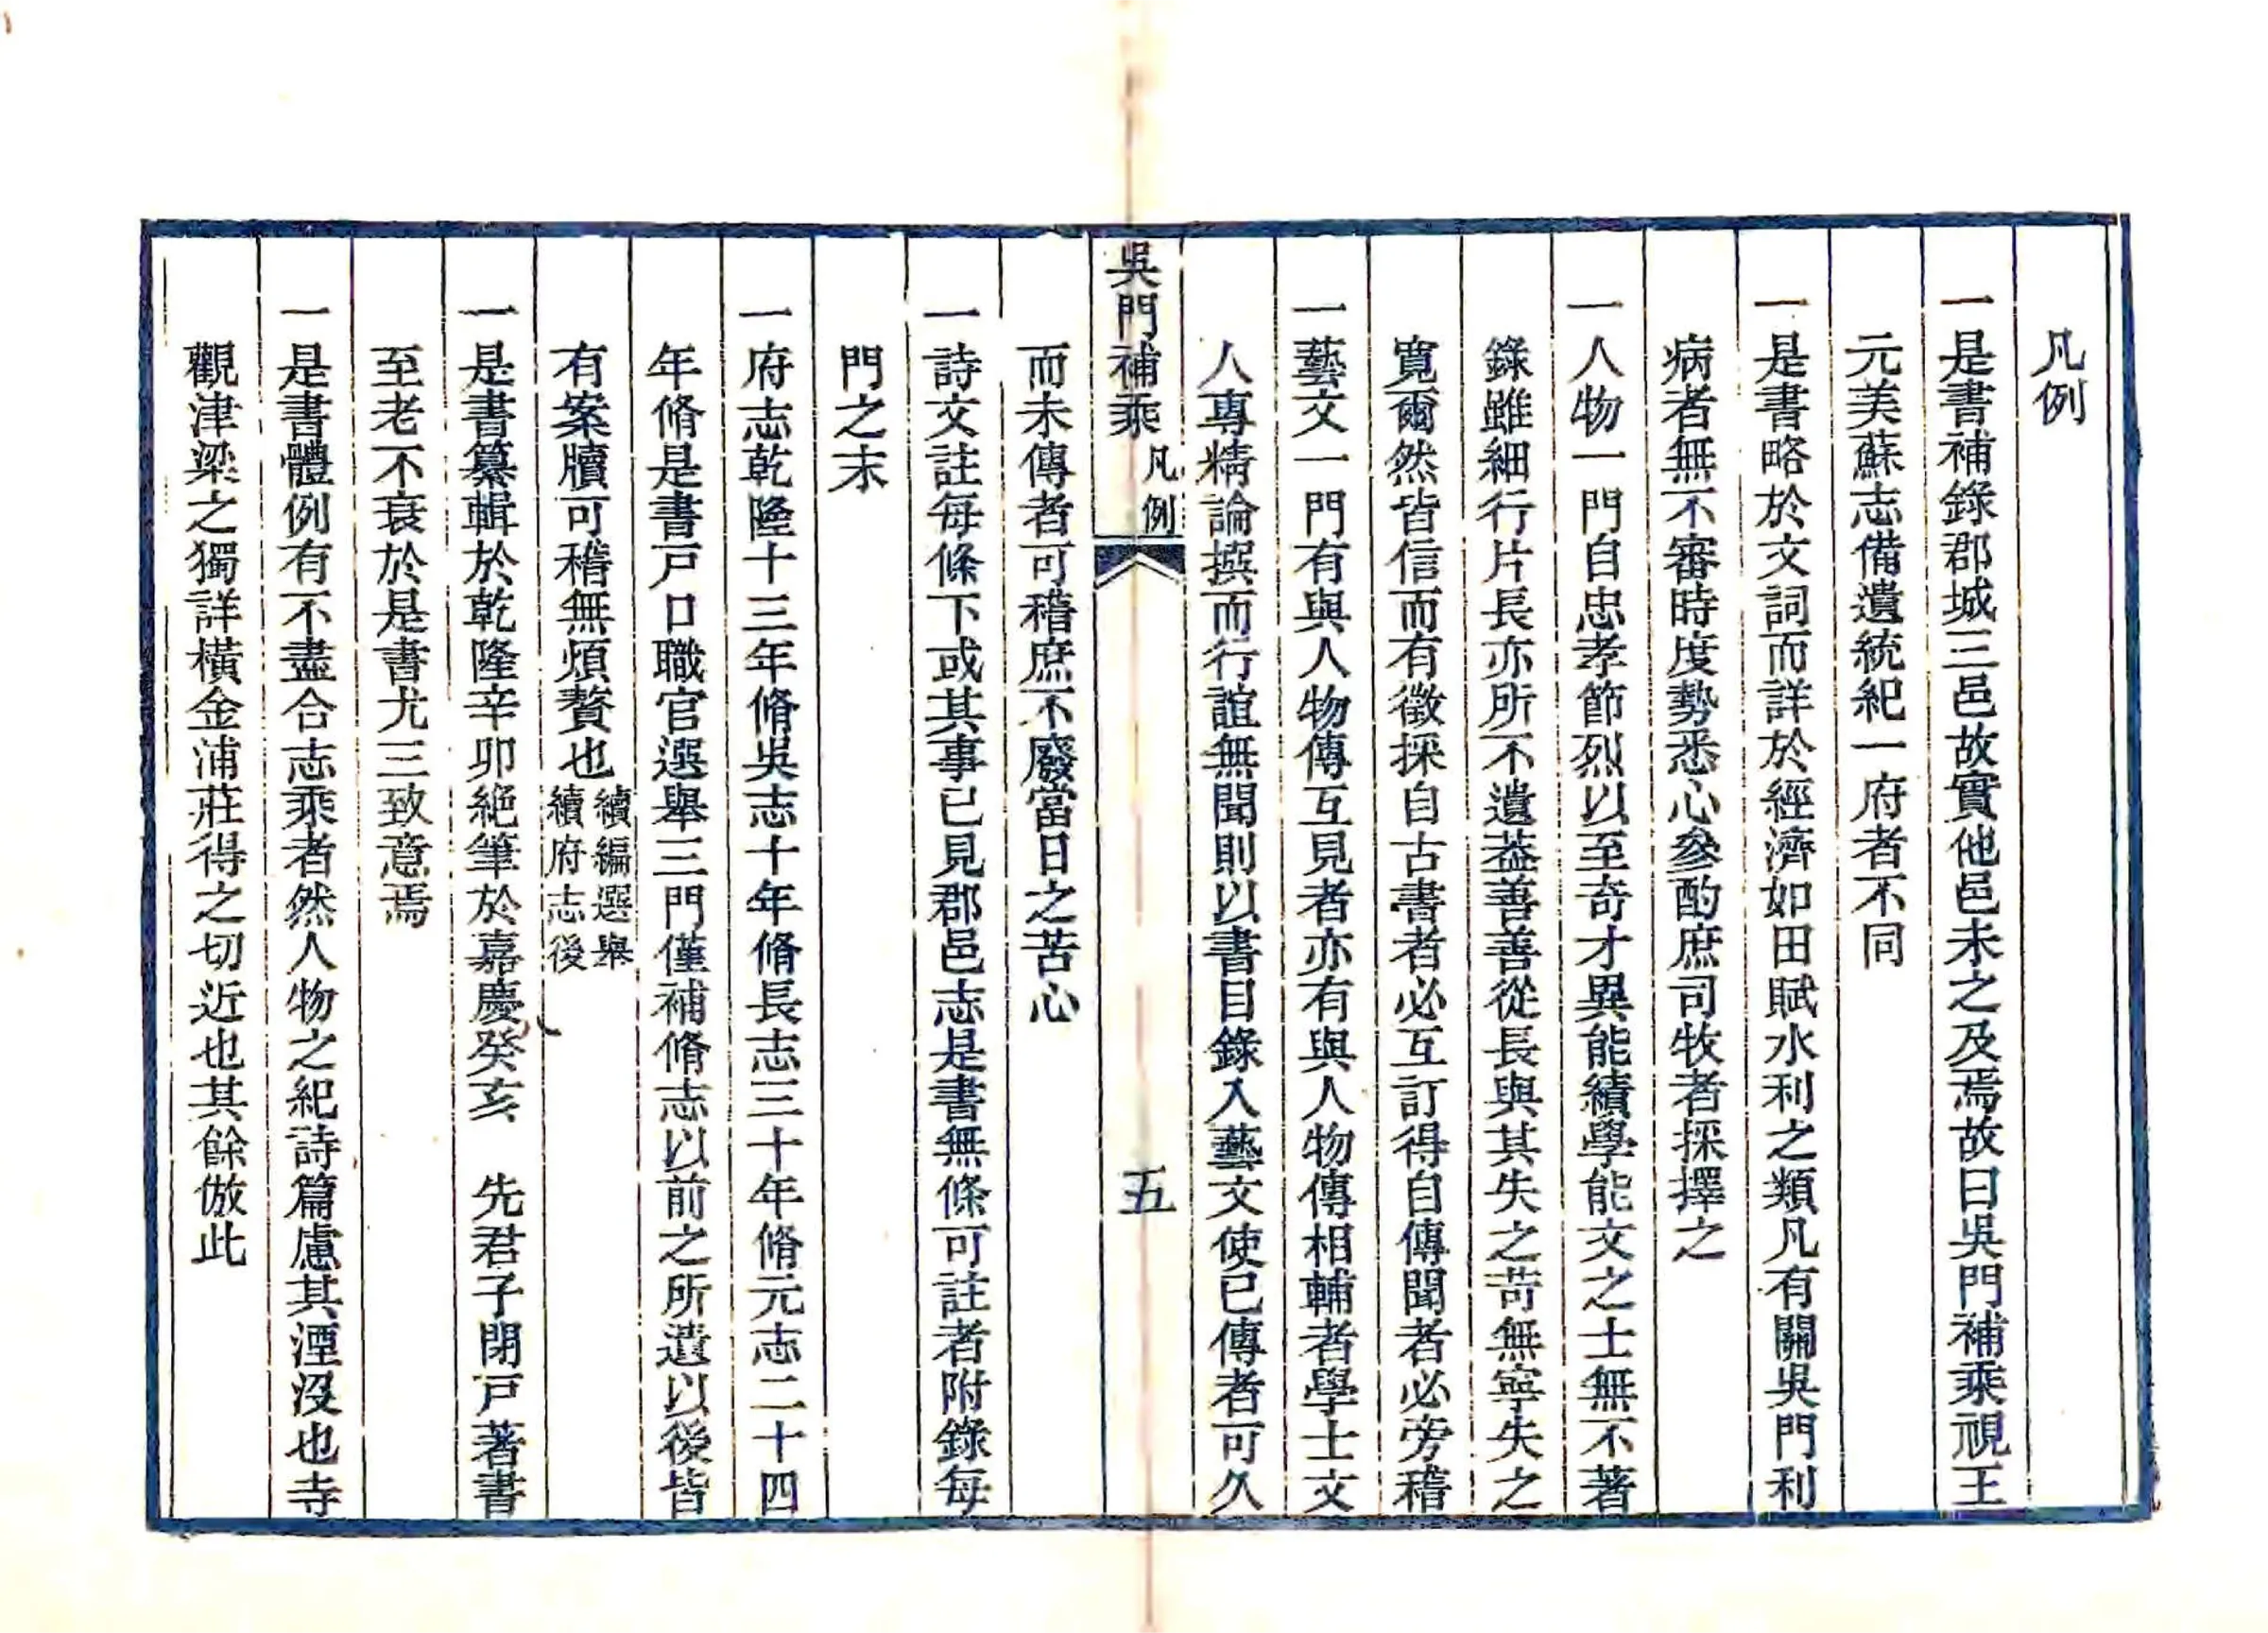 凡例
一是書補錄郡城三邑故實他邑未之及焉故曰吳門補乘視王
元美蘇志備遺統紀一府者不同
一是書略於文詞而詳於經濟如田賦水利之類凡有關吳門利
病者無不審時度勢悉心參酌庶司牧者採擇之
一人物一門自忠孝節烈以至奇才異能績學能文之士無不著
錄雖細行片長亦所不遺蓋善善從長與其失之苛無寧失之
寬爾然皆信而有徵採自古書者必互訂得自傳聞者必旁稽
一藝文一門有與人物傳互見者亦有與人物傳相輔者學士文
人專精論撰而行誼無聞則以書目錄入藝文使已傳者可久
吳門補乘 凡例 五
而未傳者可稽庶不廢當日之苦心
一詩文註每條下或其事已見郡邑志是書無條可註者附錄每
門之末
一府志乾隆十三年脩吳志十年脩長志三十年脩元志二十四
年脩是書戶口職官選舉三門僅補脩志以前之所遺以後皆
有案牘可稽無煩贅也續編選舉續府志後
一是書纂輯於乾隆辛卯絕筆於嘉慶癸亥　先君子閉戶著書
至老不衰於是書尤三致意焉
一是書體例有不盡合志乘者然人物之紀詩篇慮其湮沒也寺
觀津梁之獨詳橫金浦莊得之切近也其餘倣此